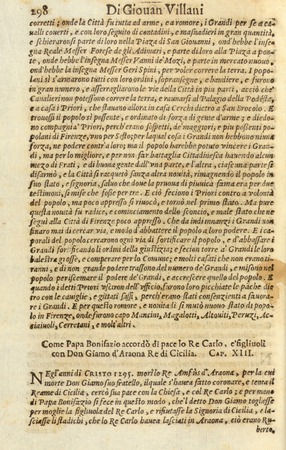 298 Di Giouan Villani
corretti; onde la Città fu tutta ad arme, e a romore, i Grandi per se a ca-
ualli couerti, e con loro seguito di contadini, e masnadieri in gran quantità,
e schieraronsi parte di loro nella Piazza di San Giouanni, ond'hebbe l'inse-
gna Reale Messer Forese de gli Adimari, e parte di loro alla Piazza a pon-
te, onde hebbe l'insegna Messer Vanni de' Mozi, e parte in mercato nuouo,
ond'hebbe la insegna Geri Spini, per voler correre la terra. I popo-
lani s'armarono tutti con loro ordini, sopransegne, e bandiere, e furono
in gran numero, e asserragliarono le vie della Città in piu parti, acciò che
Caualieri non potessono correre la terra, e raunarsi al Palagio della Podestà,
e a casa i Priori, che stauano allora in casa Cerchi dietro a San Brocolo. E
trouossi il popolo sì possente, e ordinato di forza di gente d'arme; e diedo-
no compagnia a' Priori, perch'erano sospetti, de maggiori, e piu possenti po-
polani di Firenze, vno per Sesto; per la qual cosa i Grandi non hebbono niuna
forza, ne podere contro a loro; ma il popolo harebbe potuto vincere i Gran-
di, ma per lo migliore, e per non far battaglia Cittadinesca hauendo alcun
mezo di Frati, e di buona gente dall'vna parte, e l'altra, ciascuna parte si
disarmò, e la Città si racquetò sanza altra nouità, rimagnendo il popolo in
suo stato, e signoria, saluo che doue la pruoua di piuuica fama era per due
testimoni, si mise che fosse per tre. E ciò feciono i Priori contro a volontà
del popolo, ma poco appresso si riuocò, e tornò nel primo stato. Ma pure
questa nouità fu radice, e cominciamento dello sconcio, e male stato che ne
seguì alla Città di Firenze poco appresso. Che da indi innanzi i Grandi non
finaro mai di cercar via, e modo d'abbattere il popolo a loro podere. E i ca-
porali del popolo cercarono ogni via di fortificare il popolo, e d'abbassare i
Grandi fortificando li ordini della giustizia; e fecion torre a' Grandi le loro
balestra grosse, e comperare per lo Comune; e molti casati che non erano ti-
ranni, e di non grande podere trassono del numero de' Grandi, e misson nel
popolo per iscemare il podere de' Grandi, e accrescere quella del popolo. E
quando i detti Priori vsciron dell'vfficio, furono loro picchiate le panche die-
tro con le caviglie, e gittati sassi, perch'erano stati consenzienti a fauore-
re i Grandi. E per questo romore, e nouità si si mutò nuouo stato di popo-
lo in Firenze, onde furono capo Mancini, Magalotti, Altouiti, Peruzzi, Ac-
ciaiuoli, Cerretani, e molt'altri.
Come Papa Bonifazio accordò di pace lo Re Carlo, e figliuoli
con Don Giamo d'Araona Re di Cicilia. CAP. XIII.
NEgl'anni di CRISTO 1295. morto lo Re Amfùs d'Araona, per la cui
morte Don Giamo suo fratello, il quale s'hauea fatto coronare, e tenea il
Reame di Cicilia, cercò sua pace con la Chiesa, e col Re Carlo: e per mano
di Papa Bonifazio si fece in questo modo, che'l detto Don Giamo togliesse
per moglie la figliuola del Re Carlo, e rifiutasse la Signoria di Cicilia, e la-
sciasse li stadichi, che lo Re Carlo hauea lasciati in Araona, ciò erano Ru-
berto,